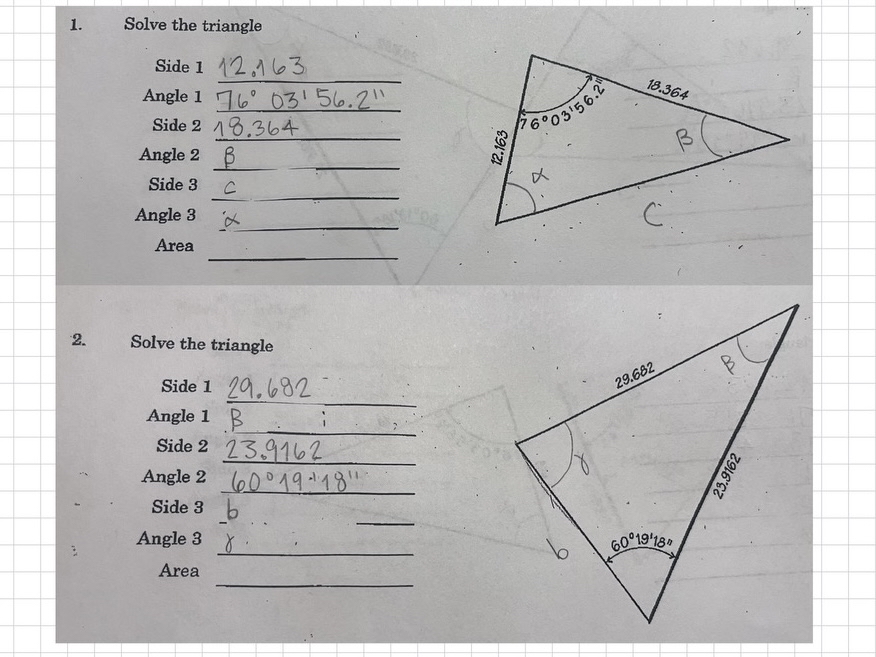 1. Solve the triangle
Side 1 12.163
Angle 1 76° 03' 56.2"
Side 2 18.364
Angle 2 β
Side 3 c
Angle 3 α
Area
18.364
76°03'56.2"
12.163
β
α
C
2. Solve the triangle
Side 1 29.682
Angle 1 β
Side 2 23.9162
Angle 2 60°19'18"
Side 3 b
Angle 3 γ
Area
29.682
β
γ
23.9162
60°19'18"
b